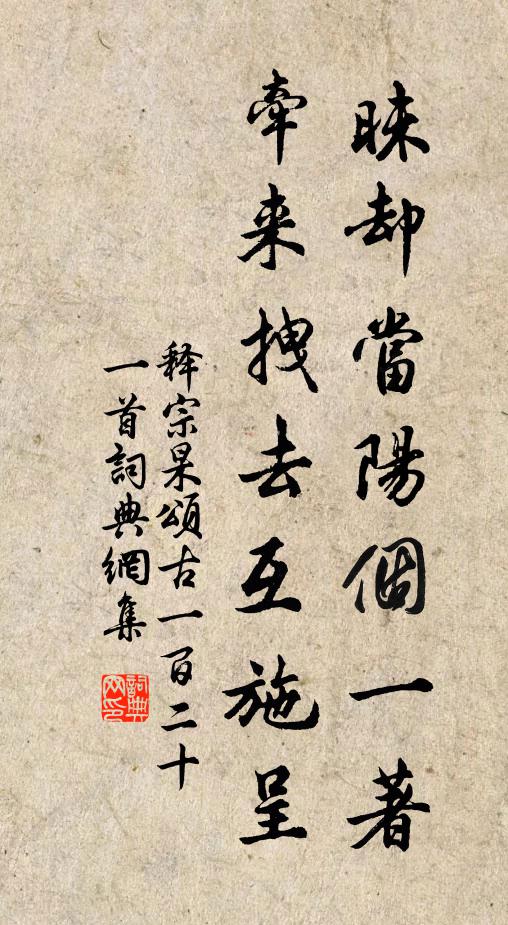 昧却當陽個一著
牵来拽去互施呈
释宗杲頌古一百二十
一首詞典網集
詞典网印